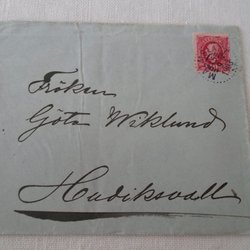 Fröken
Göta Wiklund
Hudiksvall